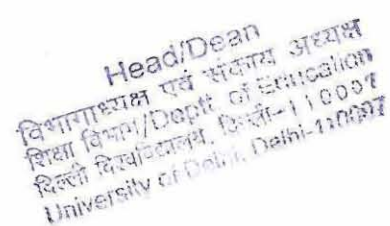 Head/Dean
विभागाध्यक्ष एवं संकाय अध्यक्ष
शिक्षा विभाग/Deptt. of Education
दिल्ली विश्वविद्यालय, दिल्ली-110007
University of Delhi, Delhi-110007